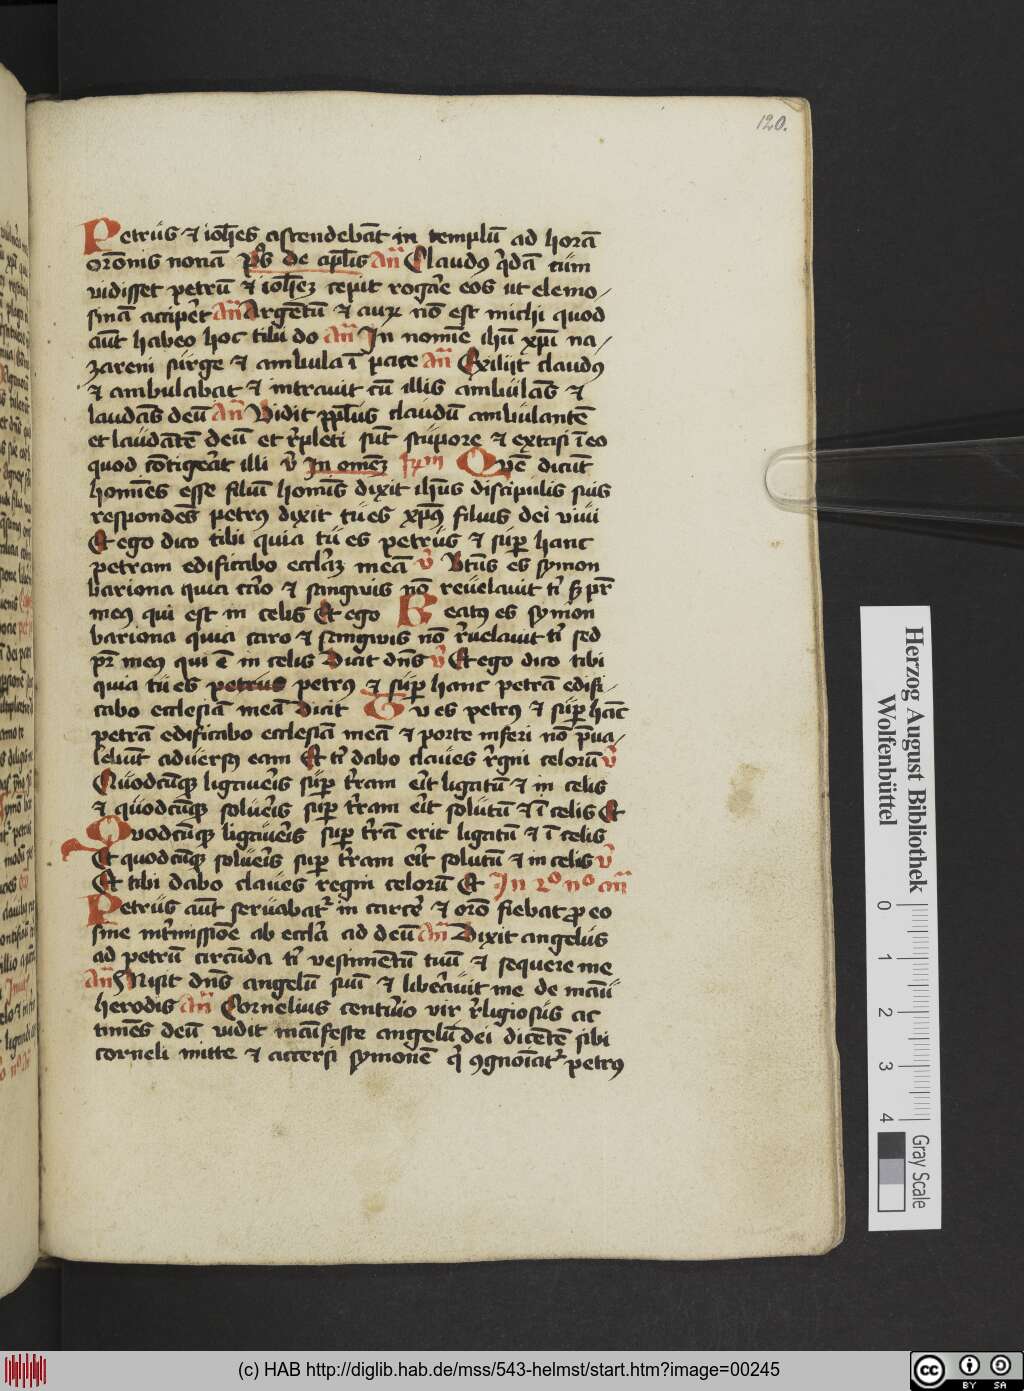 120.
Petrus et ioh̅es ascendeba̅t in templu̅ ad hora̅
oro̅nis nona̅ p̅s de ap̅lis an̅ Claudus q̅da̅ tu̅m
vidisset petru̅ et ioh̅em cepit rogar̅e eos ut elemo-
sina̅ accip̅et an̅ Argentu̅ et auru̅ no̅ est michi quod
aut̅ habeo hoc tibi do an̅ In nomi̅e ihu̅ xp̅i na-
zareni surge et ambula i̅ pace an̅ Exiliit claudus
et ambulabat et intravit cu̅ illis ambula̅s et
lauda̅s deu̅ an̅ Vidit p̅pl̅us claudu̅ ambulante̅
et laudante̅ deu̅ et r̅pleti su̅t stupore et extasi i̅ eo
quod co̅tigera̅t illi v̅ In omem Quē dicu̅t
homi̅es esse filiu̅ homi̅s dixit ih̅us discipulis suis
responde̅s petrus dixit tu es xp̅us filius dei vivi
Et ego dico tibi quia tu es petrus et sup̅ hanc
petram edificabo eccl̅iaz mea̅ v̅ Bt̅us es symon
bariona quia car̅o et sangwis no̅ revelavit t̅i s̅ p̅r
meus qui est in celis Et ego Beatus es symon
bariona quia caro et sangwis no̅ r̅velavit t̅i sed
p̅r meus qui e̅ in celis Dicit dn̅s v̅ Et ego dico tibi
quia tu es petrus petrus et sup̅ hanc petra̅ edifi-
cabo ecclesia̅ mea̅ Dicit Tu es petrus et sup̅ ha̅c
petra̅ edificabo ecclesia̅ mea̅ et porte inferi no̅ p̅va-
lebu̅t adversus eam Et t̅i dabo claves r̅gni celoru̅ v̅
Quodcu̅q̅ ligaver̅is sup̅ t̅ram er̅it ligatu̅ et in celis
et quodcu̅q̅ solver̅is sup̅ t̅ram er̅it solutu̅ et i̅ celis Et
Quodcu̅q̅ ligaver̅is sup̅ t̅ra̅ erit ligatu̅ et i̅ celis
Et quodcu̅q̅ solver̅is sup̅ t̅ram er̅it solutu̅ et in celis v̅
Et tibi dabo claves regni celoru̅ Et In 2o no an̅
Petrus aut̅ servabat̅ in carcer̅e et oro̅ fiebat p̅ eo
sine int̅missio̅e ab eccl̅ia ad deu̅ an̅ Dixit angelus
ad petru̅ circu̅da t̅i vestimentu̅ tuu̅ et sequere me
an̅ Misit dn̅s angelu̅ suu̅ et liber̅avit me de manu
herodis an̅ Cornelius centu̅rio vir r̅ligiosus ac
time̅s deu̅ vidit ma̅ifeste angelu̅ dei dicente̅ sibi
corneli mitte et accersi symone̅ q̅ cogno̅iat̅ petrus
Herzog August Bibliothek
Wolfenbüttel
0 1 2 3 4
Gray Scale
(c) HAB http://diglib.hab.de/mss/543-helmst/start.htm?image=00245
cc BY SA